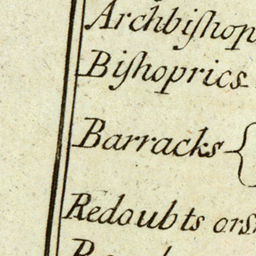 Archbiſhop
Biſhoprics
Barracks {
Redoubts or